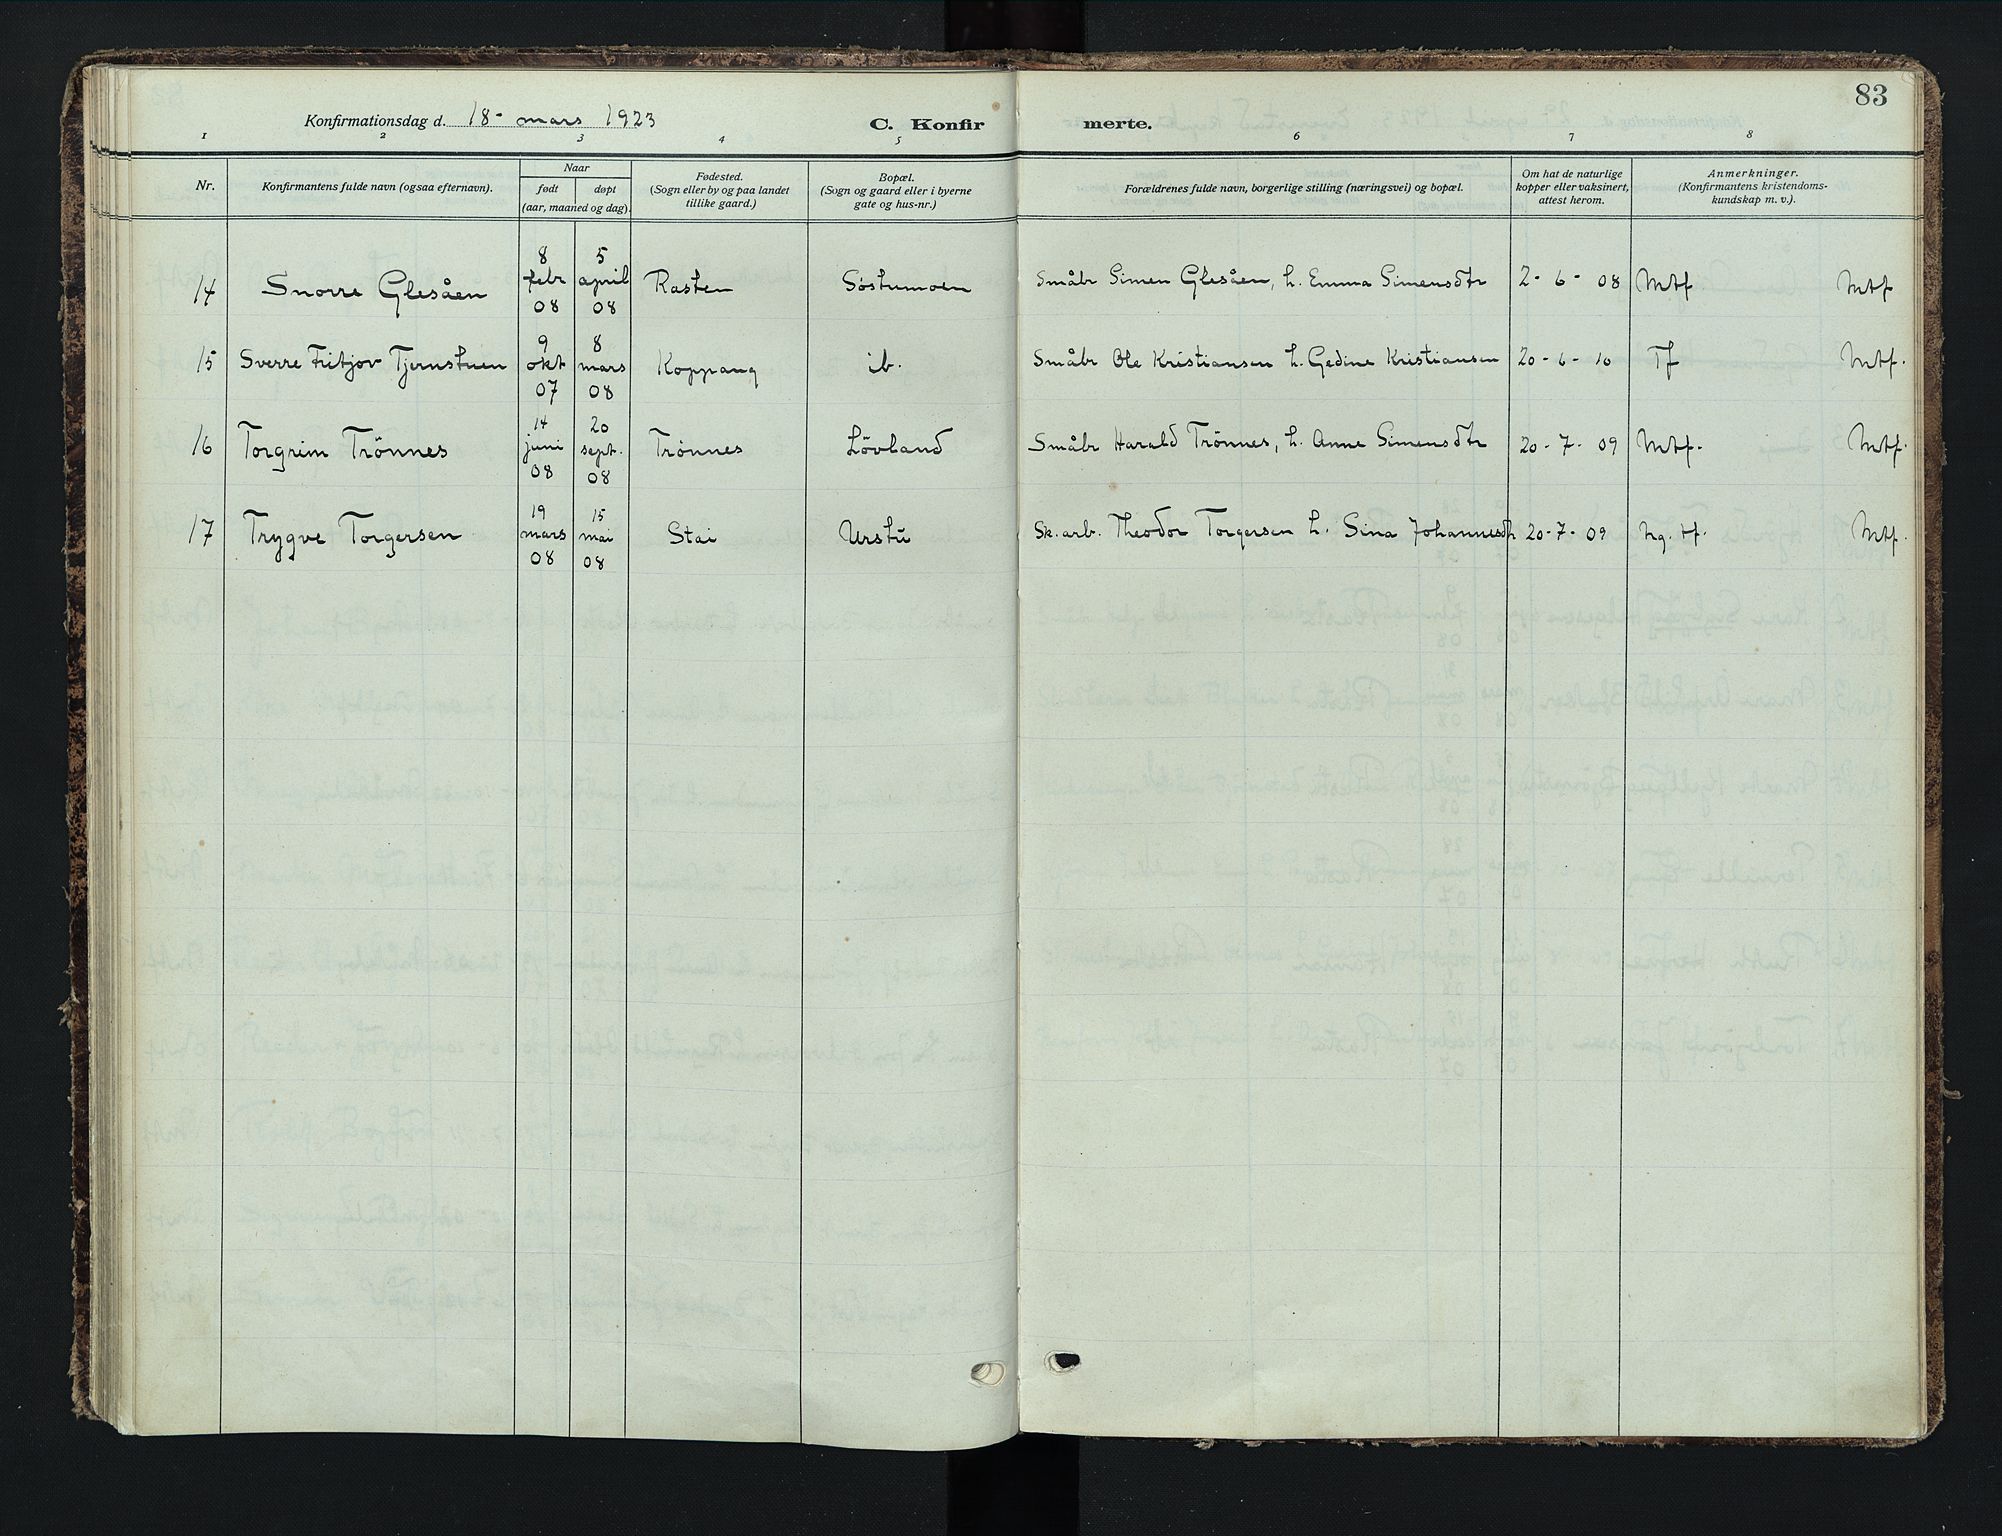 83
Konfirmationsdag d. 18 - mars 1923 C. Konfirmerte.
1 2 3 4 5 6 7 8
Nr. Konfirmantens fulde navn (ogsaa efternavn). Naar født døpt (aar, maaned og dag). Fødested. (Sogn eller by og paa landet tillike gaard.) Bopæl. (Sogn og gaard eller i byerne gate og hus-nr.) Forældrenes fulde navn, borgerlige stilling (næringsvei) og bopæl. Om hat de naturlige kopper eller vaksinert, attest herom. Anmerkninger. (Konfirmantens kristendomskundskap m. v.).
14 Snorre Glesåen 8 febr 08 5 april 08 Rasten Søstumoen Småbr Simen Glesåen, h. Emma Simensdtr 2 - 6 - 08 Mtf Mtf
15 Sverre Fritjov Tjernstuen 9 okt 07 8 mars 08 Koppang ib. Småbr Ole Kristiansen h. Gedine Kristiansen 20 - 6 - 10 Tf Mtf.
16 Torgrim Trønnes 14 juni 08 20 sept. 08 Trønnes Løvland Småbr Harald Trønnes, h. Anne Simensdtr 20 - 7 - 09 Mtf. Mtf.
17 Trygve Torgersen 19 mars 08 15 mai 08 Stai Urstu Sk. arb. Theodor Torgersen h. Sina Johannesdtr 20 - 7 - 09 Ng. tf. Mtf.